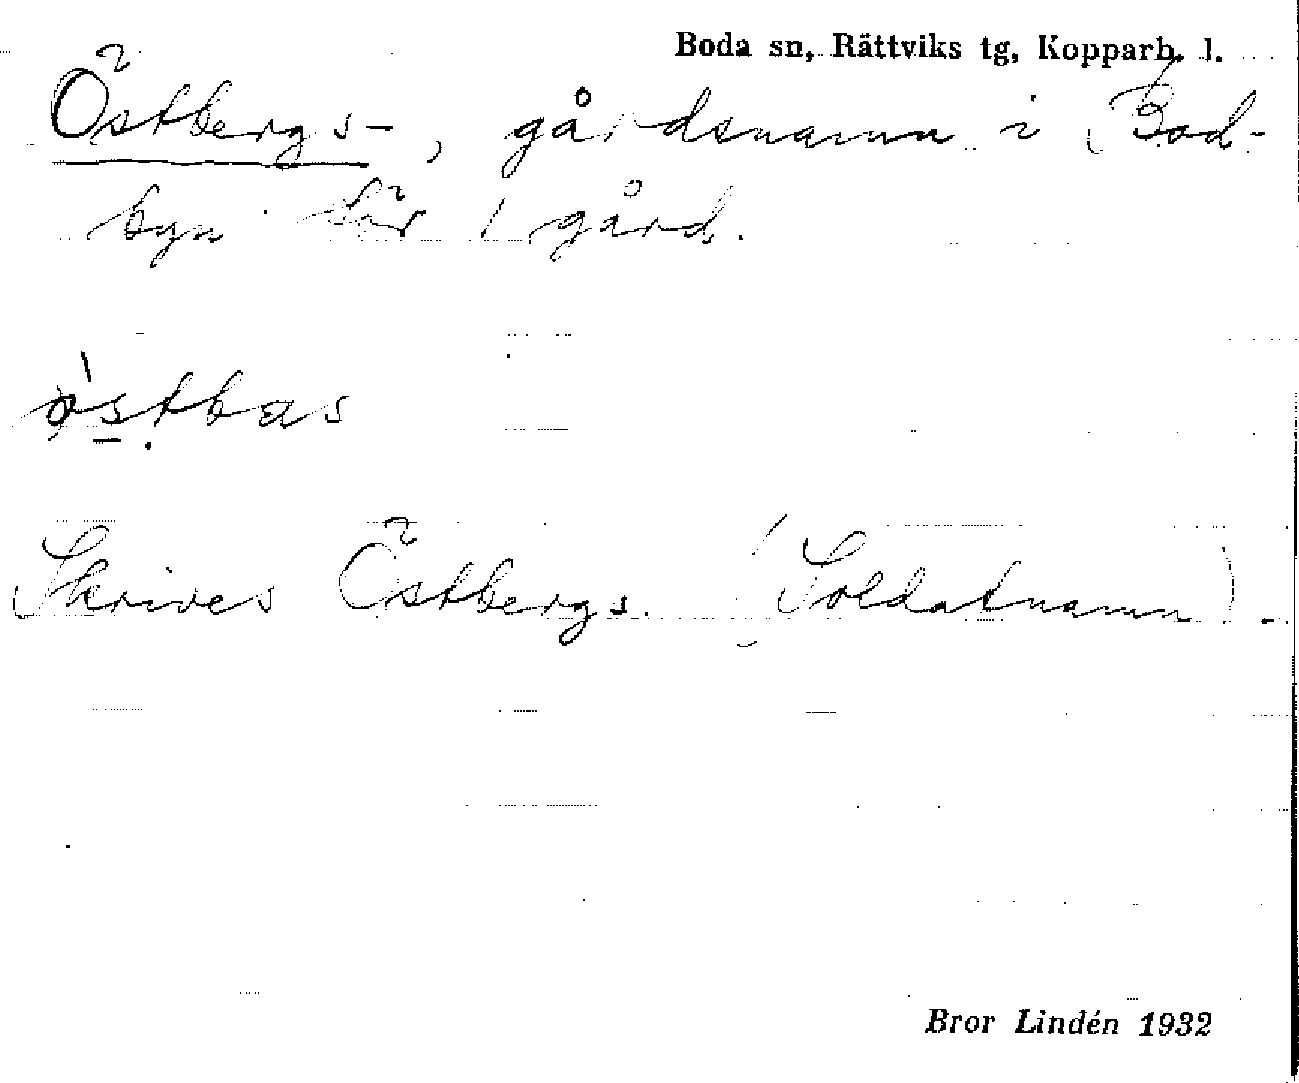 Boda sn, Rättviks tg, Kopparb. l.
Östbergs-, gårdsnamn i Bod-
byn för 1 gård.
østbas
Skrives Östbergs. (Soldatnamn).
Bror Lindén 1932